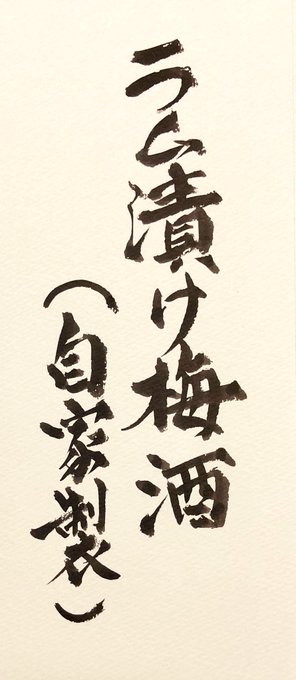 ラム漬け梅酒
（自家製）